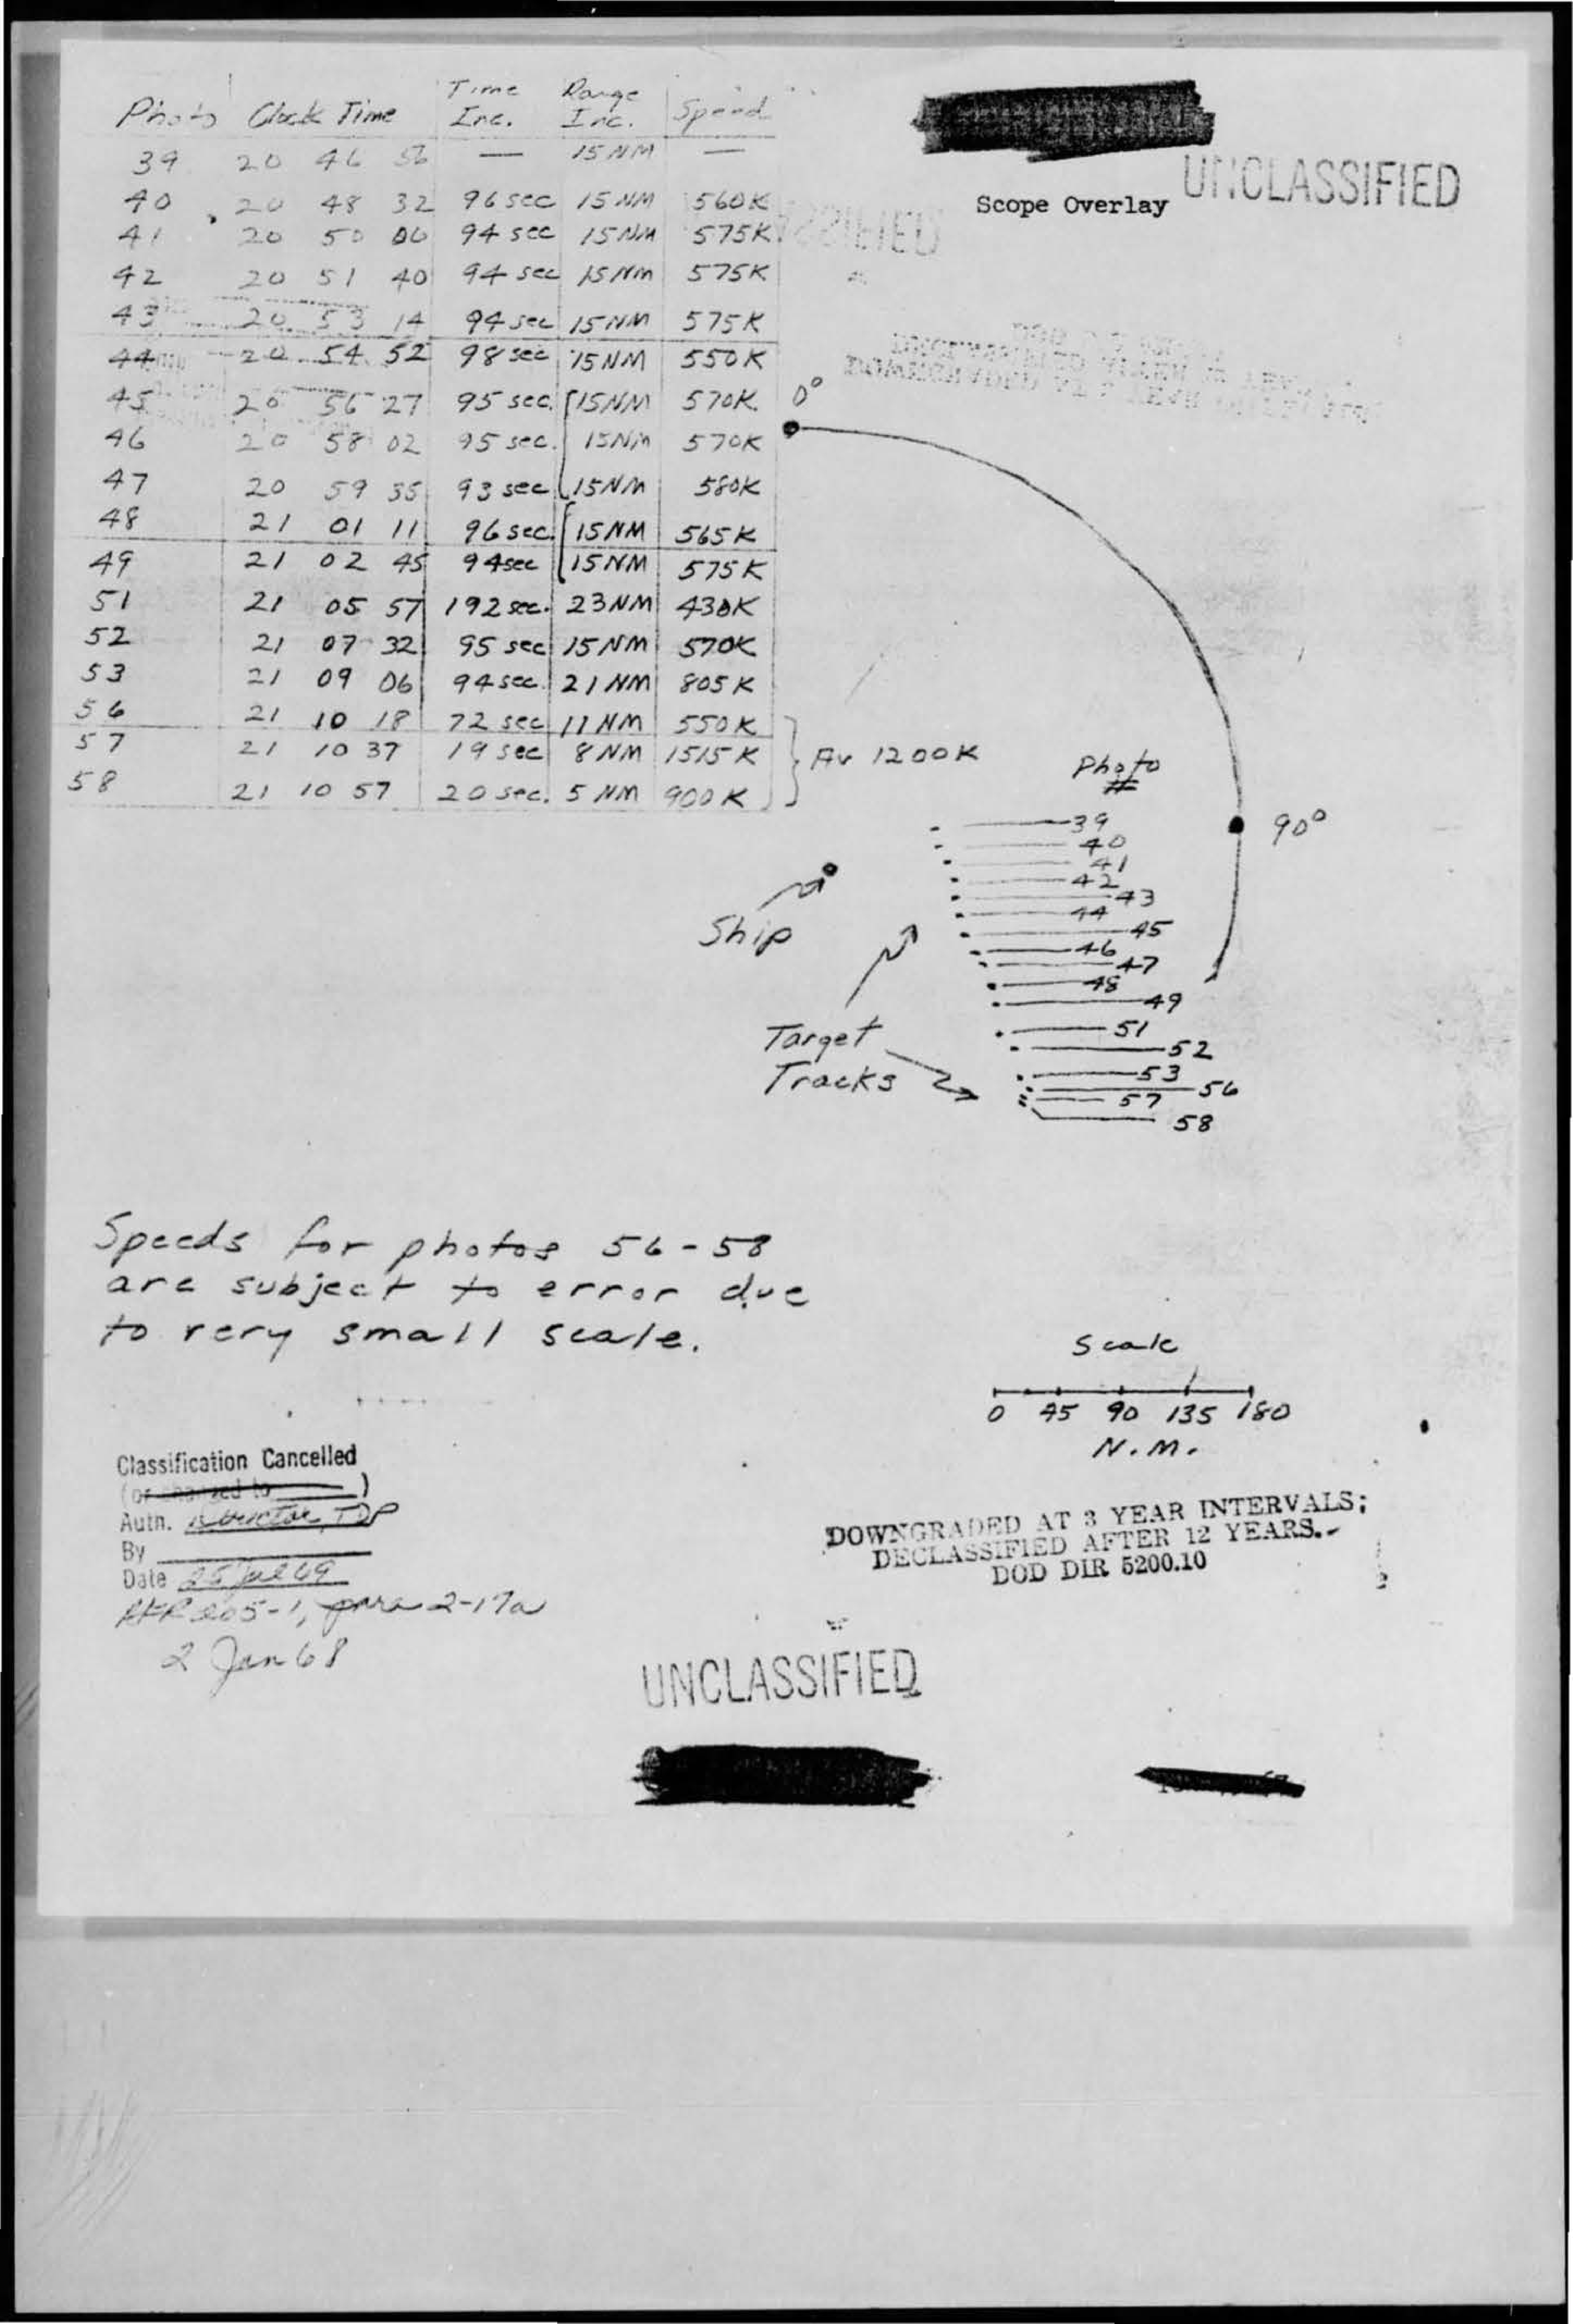 Photo Clock Time Time Inc. Range Inc. Speed
39 20 46 56 — 15 NM —
40 20 48 32 96 sec 15 NM 560K
41 20 50 06 94 sec 15 NM 575K
42 20 51 40 94 sec 15 NM 575K
43 20 53 14 94 sec 15 NM 575K
44 20 54 52 98 sec 15 NM 550K
45 20 56 27 95 sec. 15 NM 570K
46 20 58 02 95 sec. 15 NM 570K
47 20 59 35 93 sec 15 NM 580K
48 21 01 11 96 sec. 15 NM 565K
49 21 02 45 94 sec 15 NM 575K
51 21 05 57 192 sec. 23 NM 430K
52 21 07 32 95 sec 15 NM 570K
53 21 09 06 94 sec. 21 NM 805K
56 21 10 18 72 sec 11 NM 550K
57 21 10 37 19 sec 8 NM 1515K
58 21 10 57 20 sec. 5 NM 900K
Av 1200K
UNCLASSIFIED
Scope Overlay
0°
90°
Photo
#
39
40
41
42
43
44
45
46
47
48
49
51
52
53
56
57
58
Ship
Target
Tracks
Speeds for photos 56-58
are subject to error due
to very small scale.
Scale
0 45 90 135 180
N.M.
Classification Cancelled
(or changed to )
Auth. Director, TDP
By
Date 25 Jul 69
AFR 205-1, para 2-17a
2 Jan 68
DOWNGRADED AT 3 YEAR INTERVALS;
DECLASSIFIED AFTER 12 YEARS.
DOD DIR 5200.10
UNCLASSIFIED